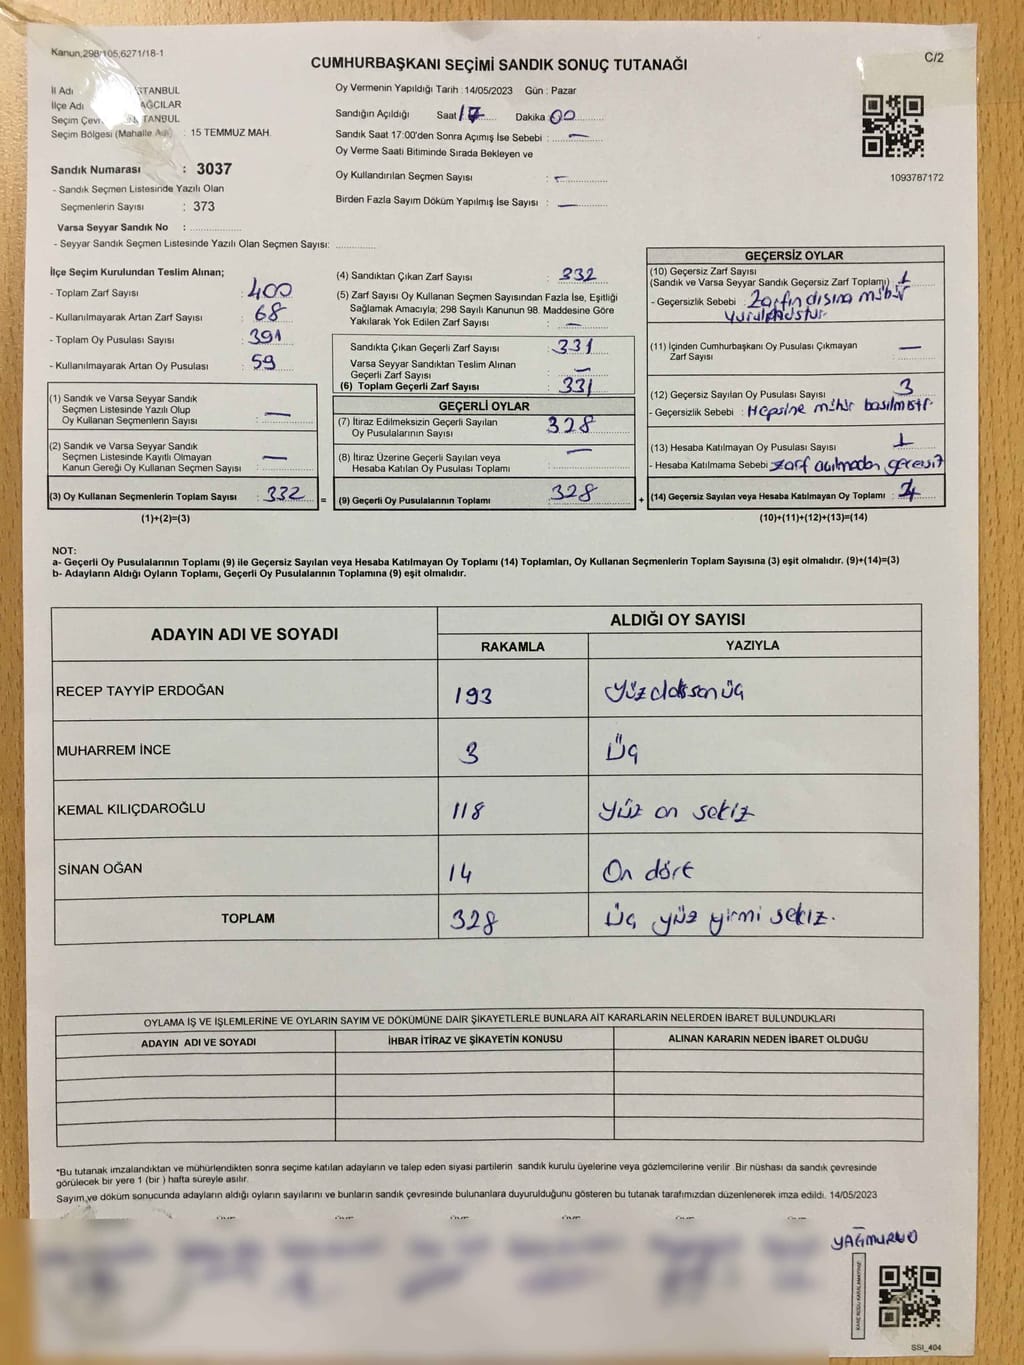 Kanun,298/105,6271/18-1
C/2
CUMHURBAŞKANI SEÇİMİ SANDIK SONUÇ TUTANAĞI
İl Adı STANBUL
İlçe Adı AĞCILAR
Seçim Çevr TANBUL
Seçim Bölgesi (Mahalle Adı) : 15 TEMMUZ MAH.
Sandık Numarası : 3037
- Sandık Seçmen Listesinde Yazılı Olan
Seçmenlerin Sayısı : 373
Varsa Seyyar Sandık No :
- Seyyar Sandık Seçmen Listesinde Yazılı Olan Seçmen Sayısı:
Oy Vermenin Yapıldığı Tarih : 14/05/2023 Gün : Pazar
Sandığın Açıldığı Saat 17 Dakika 00
Sandık Saat 17:00'den Sonra Açımış İse Sebebi : —
Oy Verme Saati Bitiminde Sırada Bekleyen ve
Oy Kullandırılan Seçmen Sayısı : —
Birden Fazla Sayım Döküm Yapılmış İse Sayısı : —
1093787172
İlçe Seçim Kurulundan Teslim Alınan;
- Toplam Zarf Sayısı : 400
- Kullanılmayarak Artan Zarf Sayısı : 68
- Toplam Oy Pusulası Sayısı : 391
- Kullanılmayarak Artan Oy Pusulası : 59
(1) Sandık ve Varsa Seyyar Sandık
Seçmen Listesinde Yazılı Olup
Oy Kullanan Seçmenlerin Sayısı : —
(2) Sandık ve Varsa Seyyar Sandık
Seçmen Listesinde Kayıtlı Olmayan
Kanun Gereği Oy Kullanan Seçmen Sayısı : —
(3) Oy Kullanan Seçmenlerin Toplam Sayısı : 332 =
(1)+(2)=(3)
(4) Sandıktan Çıkan Zarf Sayısı : 332
(5) Zarf Sayısı Oy Kullanan Seçmen Sayısından Fazla İse, Eşitliği
Sağlamak Amacıyla; 298 Sayılı Kanunun 98. Maddesine Göre
Yakılarak Yok Edilen Zarf Sayısı : —
Sandıkta Çıkan Geçerli Zarf Sayısı : 331
Varsa Seyyar Sandıktan Teslim Alınan
Geçerli Zarf Sayısı : —
(6) Toplam Geçerli Zarf Sayısı : 331
GEÇERLİ OYLAR
(7) İtiraz Edilmeksizin Geçerli Sayılan
Oy Pusulalarının Sayısı : 328
(8) İtiraz Üzerine Geçerli Sayılan veya
Hesaba Katılan Oy Pusulası Toplamı : —
(9) Geçerli Oy Pusulalarının Toplamı : 328 +
GEÇERSİZ OYLAR
(10) Geçersiz Zarf Sayısı
(Sandık ve Varsa Seyyar Sandık Geçersiz Zarf Toplamı) : 1
- Geçersizlik Sebebi : Zarfın dışına mühür
vurulmuştur
(11) İçinden Cumhurbaşkanı Oy Pusulası Çıkmayan
Zarf Sayısı : —
(12) Geçersiz Sayılan Oy Pusulası Sayısı : 3
- Geçersizlik Sebebi : Hepsine mühür basılmıştır
(13) Hesaba Katılmayan Oy Pusulası Sayısı : 1
- Hesaba Katılmama Sebebi : zarf açılmadan geçersiz
(14) Geçersiz Sayılan veya Hesaba Katılmayan Oy Toplamı : 4
(10)+(11)+(12)+(13)=(14)
NOT:
a- Geçerli Oy Pusulalarının Toplamı (9) ile Geçersiz Sayılan veya Hesaba Katılmayan Oy Toplamı (14) Toplamları, Oy Kullanan Seçmenlerin Toplam Sayısına (3) eşit olmalıdır. (9)+(14)=(3)
b- Adayların Aldığı Oyların Toplamı, Geçerli Oy Pusulalarının Toplamına (9) eşit olmalıdır.
ADAYIN ADI VE SOYADI ALDIĞI OY SAYISI
RAKAMLA YAZIYLA
RECEP TAYYİP ERDOĞAN 193 Yüz doksan üç
MUHARREM İNCE 3 Üç
KEMAL KILIÇDAROĞLU 118 Yüz on sekiz
SİNAN OĞAN 14 On dört
TOPLAM 328 Üç yüz yirmi sekiz.
OYLAMA İŞ VE İŞLEMLERİNE VE OYLARIN SAYIM VE DÖKÜMÜNE DAİR ŞİKAYETLERLE BUNLARA AİT KARARLARIN NELERDEN İBARET BULUNDUKLARI
ADAYIN ADI VE SOYADI İHBAR İTİRAZ VE ŞİKAYETİN KONUSU ALINAN KARARIN NEDEN İBARET OLDUĞU
*Bu tutanak imzalandıktan ve mühürlendikten sonra seçime katılan adayların ve talep eden siyasi partilerin sandık kurulu üyelerine veya gözlemcilerine verilir .Bir nüshası da sandık çevresinde
görülecek bir yere 1 (bir ) hafta süreyle asılır.
Sayım ve döküm sonucunda adayların aldığı oyların sayılarını ve bunların sandık çevresinde bulunanlara duyurulduğunu gösteren bu tutanak tarafımızdan düzenlenerek imza edildi. 14/05/2023
KARE KODU KARALAMAYINIZ
SSI_404